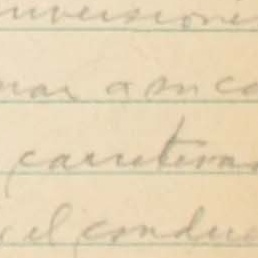 inversiones
nar a su ca
carreteras
el conduc